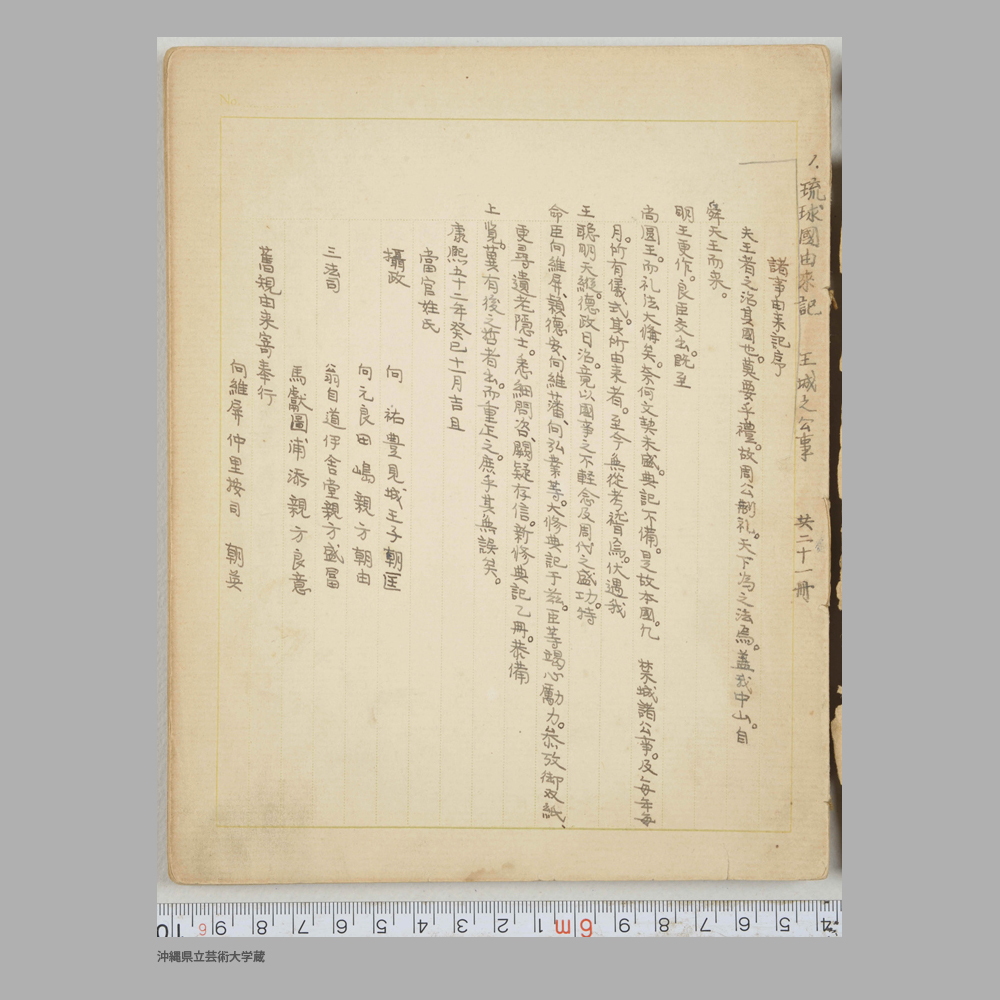 1. 琉球國由來記 王城之公事 共二十一冊
諸事由来記序
夫王者之治其國也。莫要乎禮。故周公制礼。天下為之法焉。蓋我中山。自
舜天王而来。
明王更作。良臣交出。既至
尚圓王。而礼法大備矣。奈何文契未盛。典記不備。是故本國凡 禁城諸公事。及毎年毎
月。所有儀式。其所由来者。至今無從考證焉。伏遇我
王聡明天縦。徳政日洽。竟以國事之不軽念及周代之盛功。特
命臣向維屏、穎德安、向維藩、向弘業等。大修典記于茲。臣等竭心勵力。参攷御双紙、
更尋遺老隠士。悉細問咨、闕疑存信。新修典記乙冊。恭備
上覧。冀有後之哲者出。而重正之。庶乎其無誤矣。
康熙五十二年癸巳十一月吉旦
當官姓氏
攝政 向 祐 豊見城王子朝匡
三法司 向元良田嶋親方朝由
翁自道伊舎堂親方盛富
馬獻圖浦添親方良意
舊規由来寄奉行
向維屏 仲里按司 朝英
No.
10 9 8 7 6 5 4 3 2 1 6m 9 8 7 6 5 4
沖縄県立芸術大学蔵